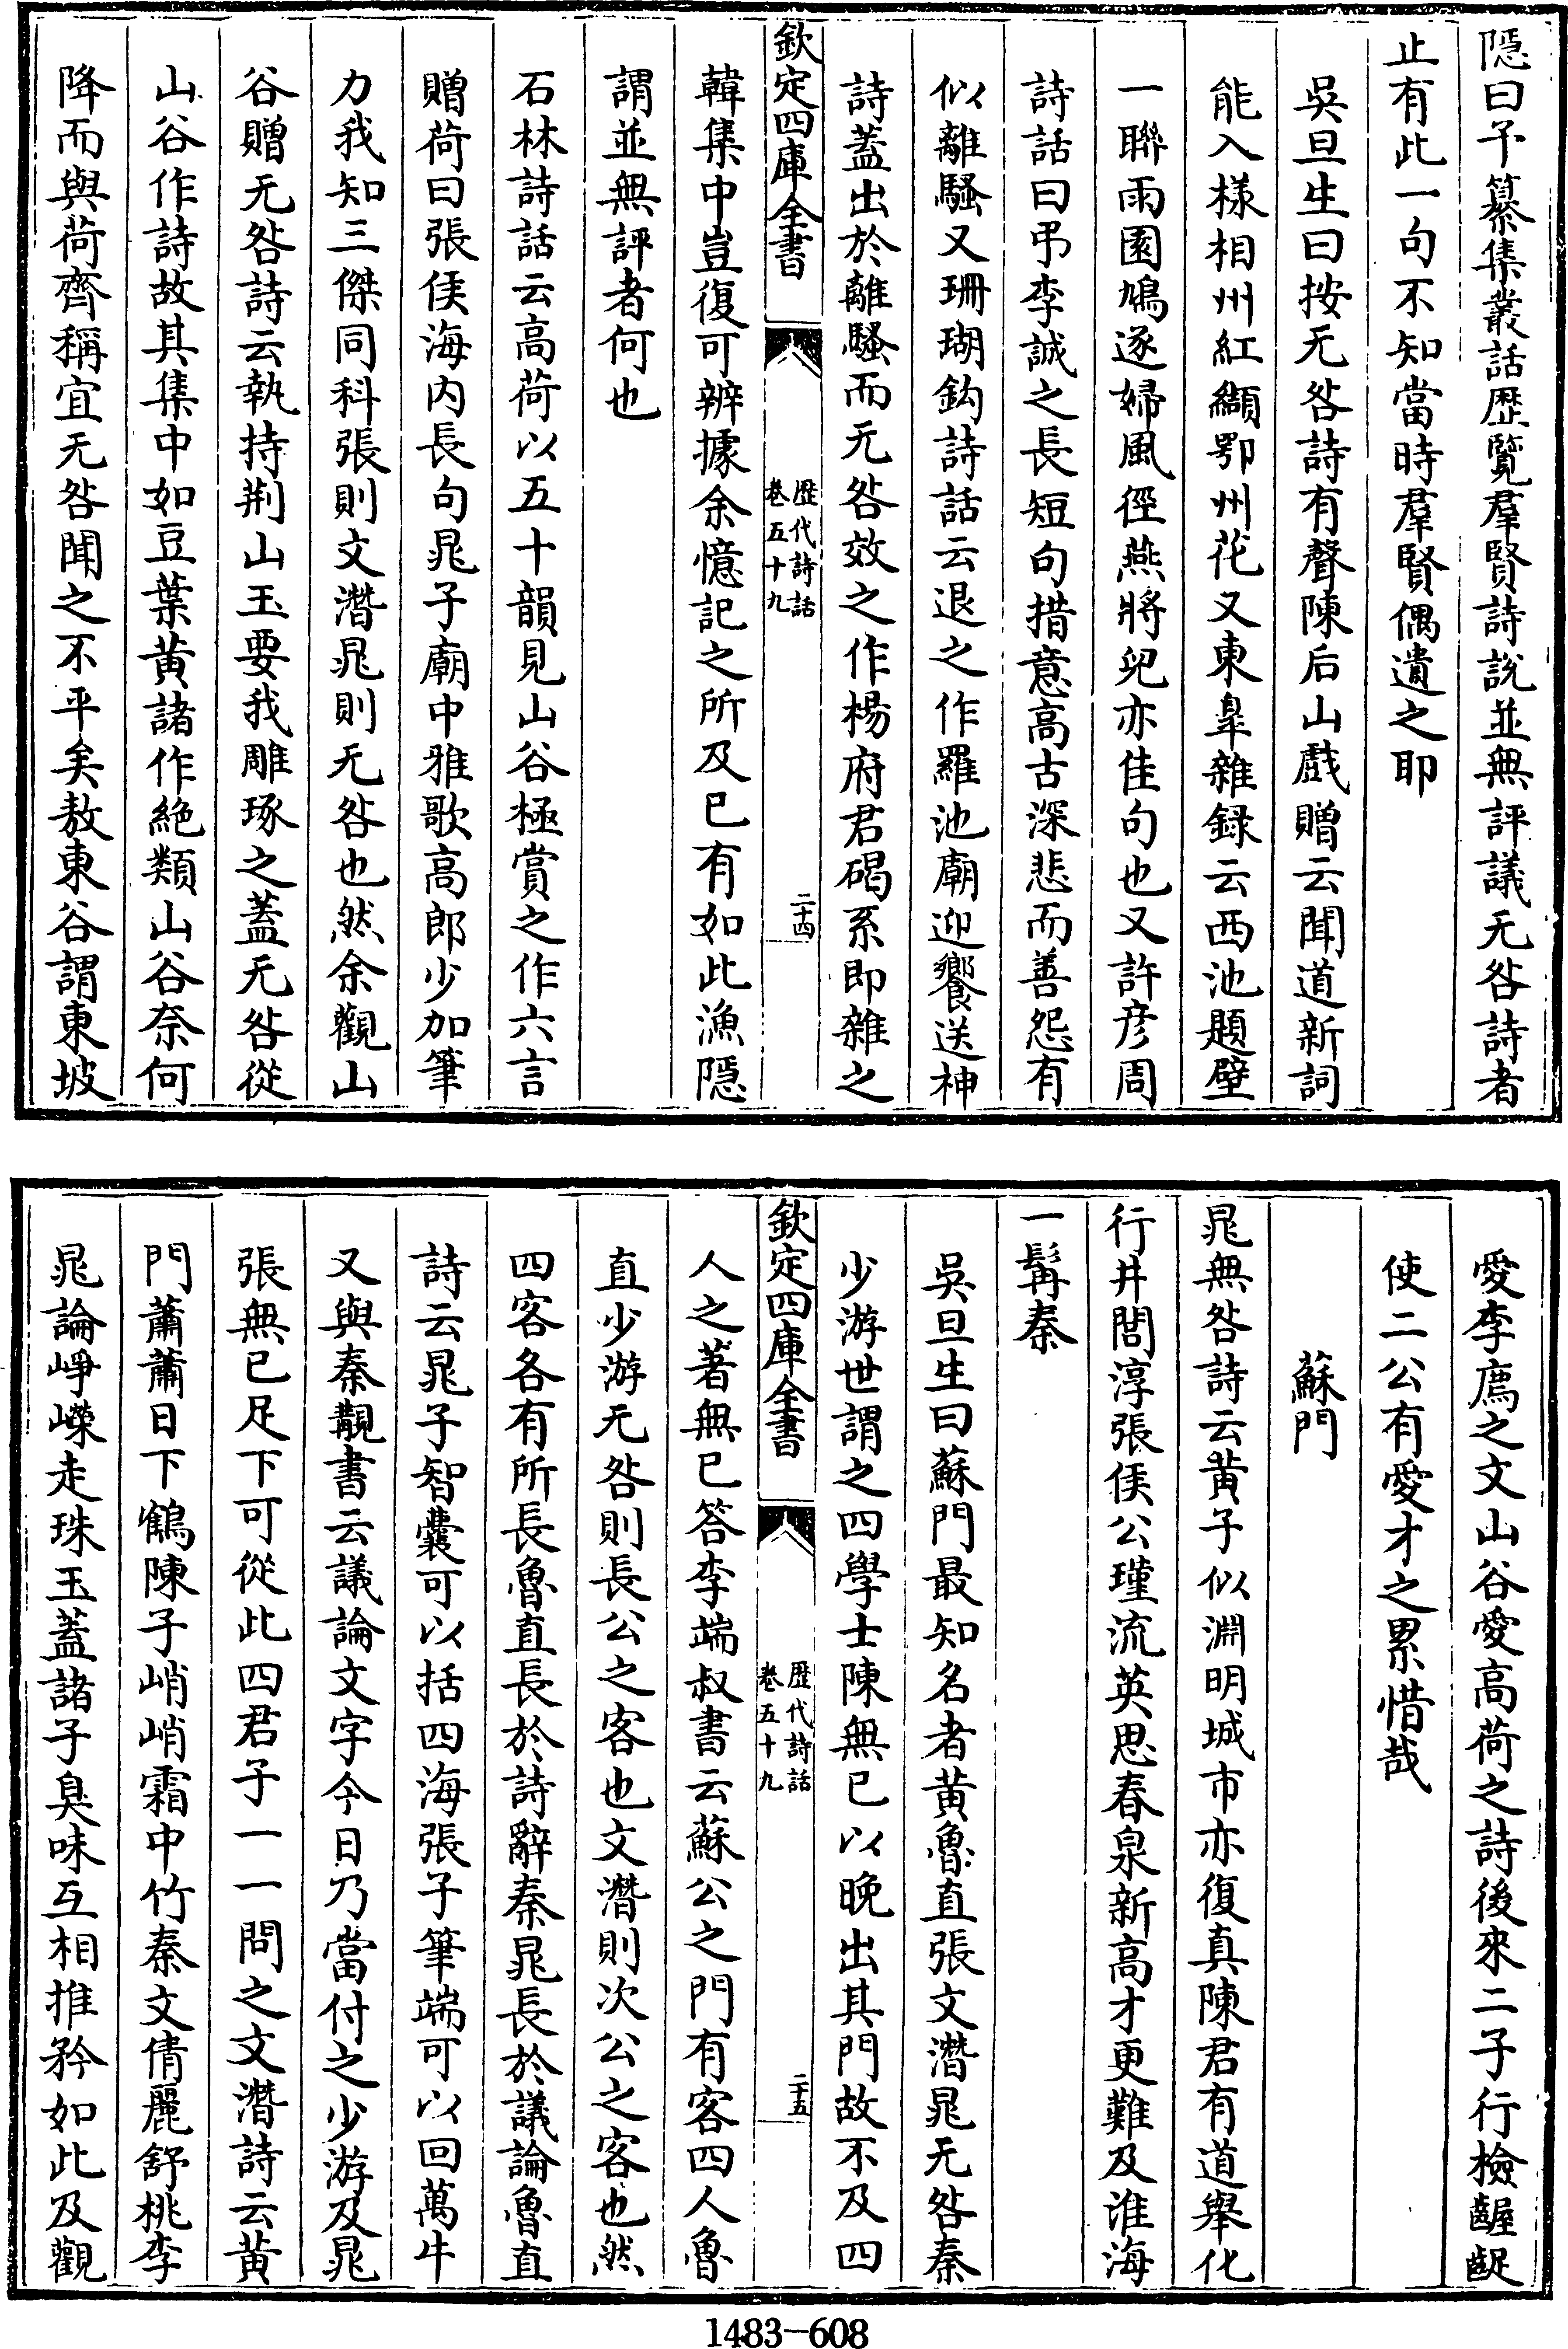 隠曰予纂集叢話歴覽羣賢詩說並無評議无咎詩者
止有此一句不知當時羣賢偶遺之耶
吳旦生曰按无咎詩有聲陳后山戲贈云聞道新詞
能入様相州紅纈鄂州花又東臯雜録云西池題壁
一聯雨園鳩逐婦風徑燕將兒亦佳句也又許彦周
詩話曰弔李誠之長短句措意高古深悲而善怨有
似離騷又珊瑚鈎詩話云退之作羅池廟迎饗送神
詩蓋出於離騷而无咎效之作楊府君碣系即雜之
欽定四庫全書
歴代詩話
卷五十九
二十四
韓集中豈復可辨據余憶記之所及已有如此漁隠
謂並無評者何也
石林詩話云高荷以五十韻見山谷極賞之作六言
贈荷曰張侯海内長句晁子廟中雅歌高郎少加筆
力我知三傑同科張則文潛晁則无咎也然余觀山
谷贈无咎詩云執持荆山玉要我雕琢之蓋无咎從
山谷作詩故其集中如豆葉黄諸作絶類山谷奈何
降而與荷齊稱宜无咎聞之不平矣敖東谷謂東坡
愛李廌之文山谷愛高荷之詩後來二子行檢齷齪
使二公有愛才之累惜哉
蘇門
晁無咎詩云黄子似淵明城市亦復真陳君有道舉化
行井閭淳張侯公瑾流英思春泉新高才更難及淮海
一髯秦
吳旦生曰蘇門最知名者黄魯直張文潛晁无咎秦
少游世謂之四學士陳無已以晚出其門故不及四
欽定四庫全書
歴代詩話
卷五十九
二十五
人之著無已答李端叔書云蘇公之門有客四人魯
直少游无咎則長公之客也文潛則次公之客也然
四客各有所長魯直長於詩辭秦晁長於議論魯直
詩云晁子智囊可以括四海張子筆端可以回萬牛
又與秦覯書云議論文字今日乃當付之少游及晁
張無已足下可從此四君子一一問之文潛詩云黄
門蕭蕭日下鶴陳子峭峭霜中竹秦文倩麗舒桃李
晁論崢嶸走珠玉蓋諸子臭味互相推矜如此及觀
1483-608